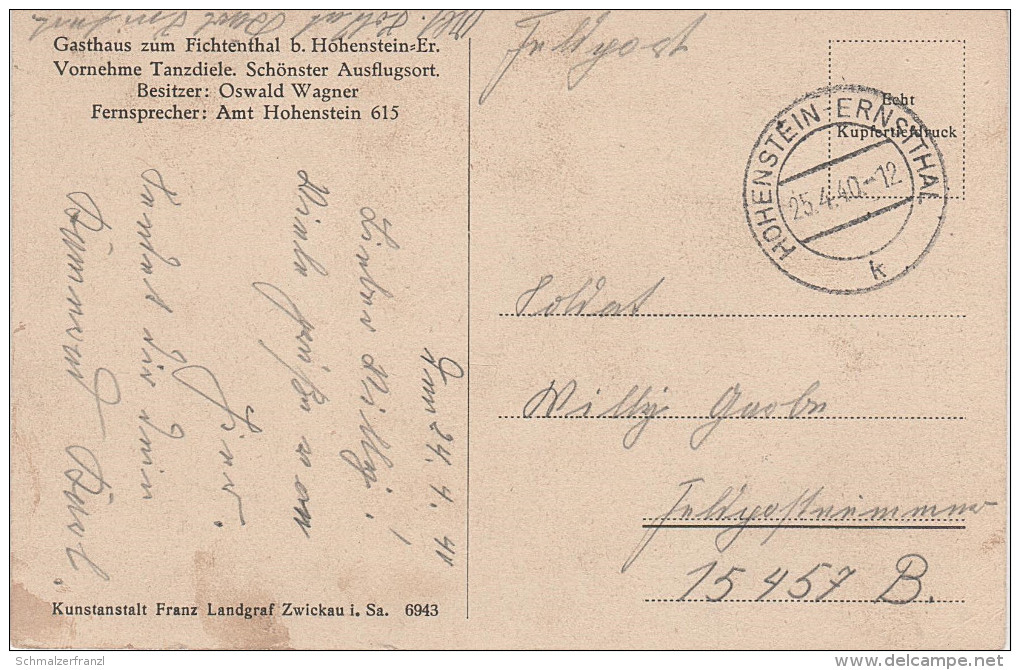 Gasthaus zum Fichtenthal b. Hohenstein-Er.
Vornehme Tanzdiele. Schönster Ausflugsort.
Besitzer: Oswald Wagner
Fernsprecher: Amt Hohenstein 615
Feldpost
Echt
Kupfertiefdruck
HOHENSTEIN-ERNSTTHAL
25.4.40.-12
k
24. 4. 40
Lieber Willy!
Viele Grüße von
hier
sendet dir dein
Kurt.
Soldat
Willy
Feldpostnummer
15457 B.
Kunstanstalt Franz Landgraf Zwickau i. Sa. 6943
Schmalzerfranzl
delcampe.net